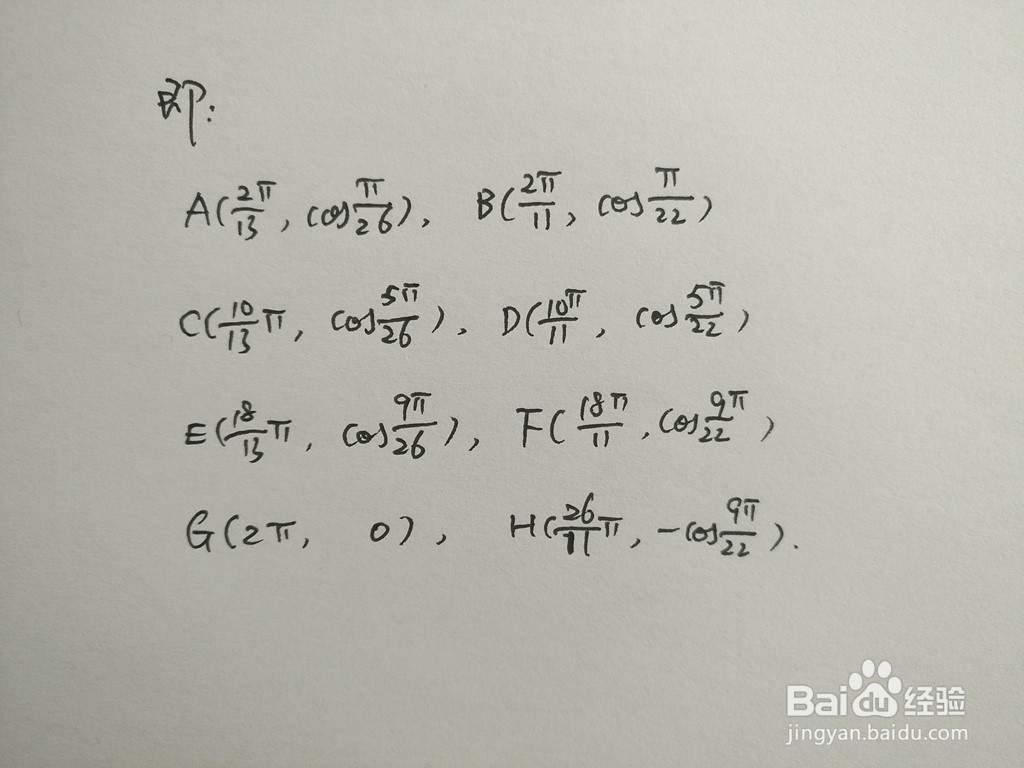 即:
A(2π/13, cosπ/26), B(2π/11, cosπ/22)
C(10/13π, cos5π/26), D(10π/11, cos5π/22)
E(18/13π, cos9π/26), F(18π/11, cos9π/22)
G(2π, 0), H(26/11π, -cos9π/22).
Baidu经验
jingyan.baidu.com